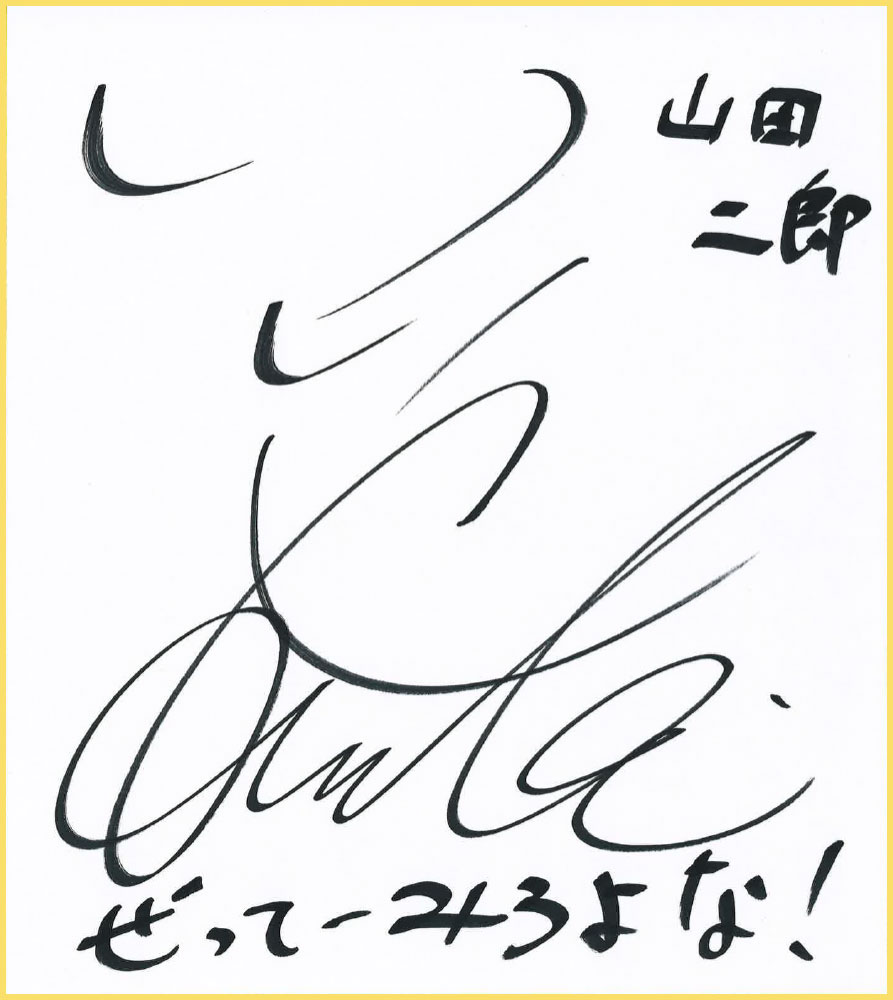 山田
二郎
ぜってーみろよな!